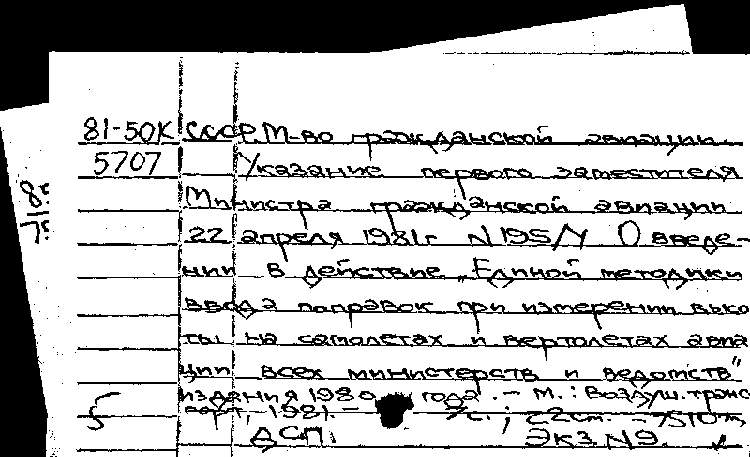 81-50К СССР. М-во гражданской авиации.
5707 Указание первого заместителя
Министра гражданской авиации
22 апреля 1981г N195/У О введе-
нии в действие „Единой методики
ввода поправок при измерении высо
ты на самолетах и вертолетах авиа
ции всех министерств и ведомств"
издания 1980 года. - М.: Воздуш. транс
порт, 1981. - 7с.; 22см. -
ДСП. Экз. N9.